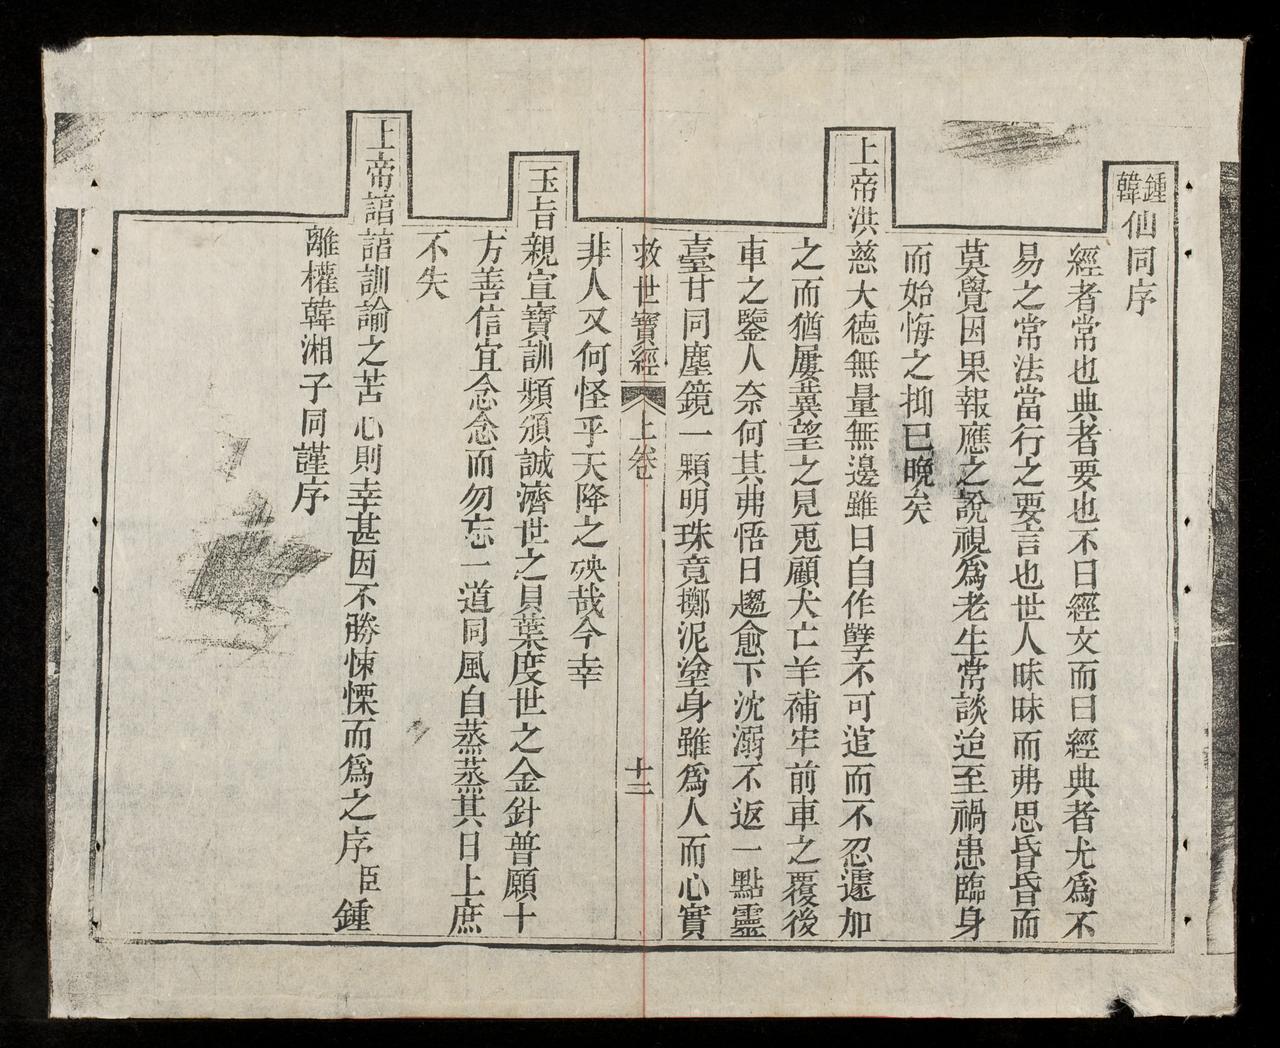 鍾韓仙同序
經者常也典者要也不曰經文而曰經典者尤爲不
易之常法當行之要言也世人昧昧而弗思昏昏而
莫覺因果報應之說視爲老生常談迨至禍患臨身
而始悔之抑已晚矣
上帝洪慈大德無量無邊雖曰自作孽不可逭而不忍遽加
之而猶屢冀望之見兎顧犬亡羊補牢前車之覆後
車之鑒人奈何其弗悟日趨愈下沈溺不返一點靈
臺甘同塵鏡一顆明珠竟擲泥塗身雖爲人而心實
救世寶經 上卷 十二
非人又何怪乎天降之殃哉今幸
玉旨親宣寶訓頻頒誠濟世之貝葉度世之金針普願十
方善信宜念念而勿忘一道同風自蒸蒸其日上庶
不失
上帝誥誥訓諭之苦心則幸甚因不勝悚慄而爲之序臣鍾
離權韓湘子同謹序